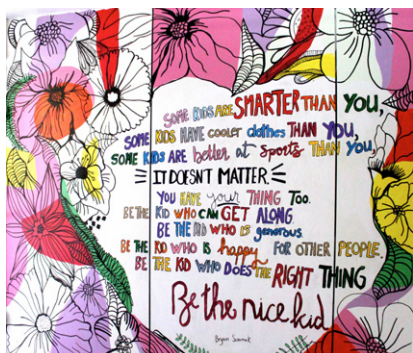 SOME KIDS ARE SMARTER THAN YOU,
SOME KIDS HAVE cooler clothes THAN YOU,
SOME KIDS ARE better at sports THAN YOU,
IT DOESN'T MATTER
YOU HAVE your THING TOO.
BE THE KID WHO CAN GET ALONG.
BE THE KID WHO IS generous.
BE THE KID WHO IS happy FOR OTHER PEOPLE.
BE THE KID WHO DOES THE RIGHT THING
Be the nice kid
Bryan